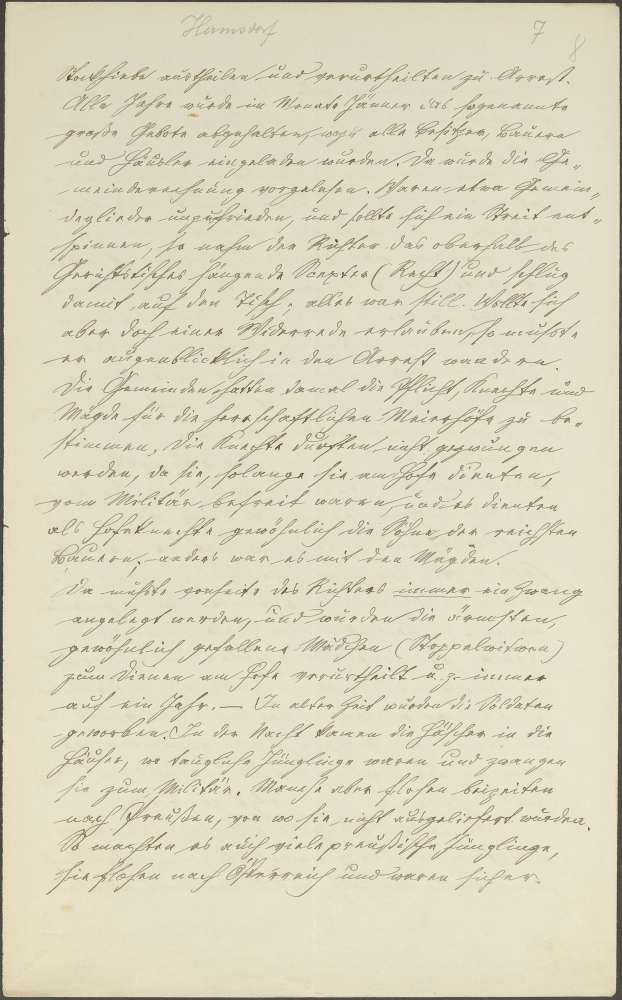 Hermsdorf 7 8
Stockhiebe austheilen und verurtheilten zu Arrest.
Alle Jahre wurde im Monate Jänner das sogenannte
große Gebote abgehalten, wozu alle Besitzer, Bauern
und Häusler eingeladen wurden. Da wurde die Ge„
meinderechnung vorgelesen. Waren etwa Gemein„
deglieder unzufrieden, und sollte sich ein Streit ent„
spinnen, so nahm der Richter das oberhalb des
Gerichtstisches hängende Scepter (Recht) und schlug
damit auf den Tisch; alles war still. Wollte sich
aber doch einer Widerrede erlauben, so mußte
er augenblicklich in den Arrest wandern.
Die Gemeinden hatten damal die Pflicht, Knechte und
Mägde für die herrschaftlichen Meierhöfe zu be„
stimmen, die Knechte durften nicht gezwungen
werden, da sie, solange sie am Hofe dienten,
vom Militär befreit waren, und es dienten
als Hofeknechte gewöhnlich die Söhne der reichsten
Bauern; anders war es mit den Mägden.
Da mußte vonseite des Richters immer ein Zwang
angelegt werden, und wurden die ärmsten,
gewöhnlich gefallene Mädchen (Stoppelwitwen)
zum Dienen am Hofe verurtheilt u. z. immer
auf ein Jahr. — In alter Zeit wurden die Soldaten
geworben. In der Nacht kamen die Häscher in die
Häuser, wo taugliche Jünglinge waren und zwangen
sie zum Militär. Manche aber flohen beizeiten
nach Preußen, von wo sie nicht ausgeliefert wurden.
So machten es auch viele preußische Jünglinge,
sie flohen nach Österreich und waren sicher.